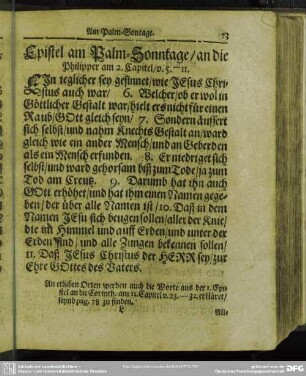 Am Palm-Sontage. 73
Epistel am Palm-Sonntage/an die
Philipper am 2. Capitel/v. 5.–11.
EIn ieglicher sey gesinnet/wie JEsus Chri-
stus auch war/ 6. Welcher/ob er wol in
Göttlicher Gestalt war/hielt ers nicht für einen
Raub/GOtt gleich seyn/ 7. Sondern äussert
sich selbst/und nahm Knechts Gestalt an/ward
gleich wie ein ander Mensch/und an Geberden
als ein Mensch erfunden. 8. Er niedriget sich
selbst/und ward gehorsam biß zum Tode/ja zum
Tod am Creutz. 9. Darumb hat ihn auch
GOtt erhöhet/und hat ihm einen Namen gege-
ben/der über alle Namen ist/10. Daß in dem
Namen JEsu sich beugen sollen/aller der Knie/
die im Himmel und auff Erden/und unter der
Erden sind/und alle Zungen bekennen sollen/
11. Daß JEsus Christus der HERR sey/zur
Ehre GOttes des Vaters.
An etlichen Orten werden auch die Worte aus der 1. Epi-
stel an die Corinth. am 11. Capitel v. 23.–32. erkläret/
seynd pag. 78 zu finden.
Als-